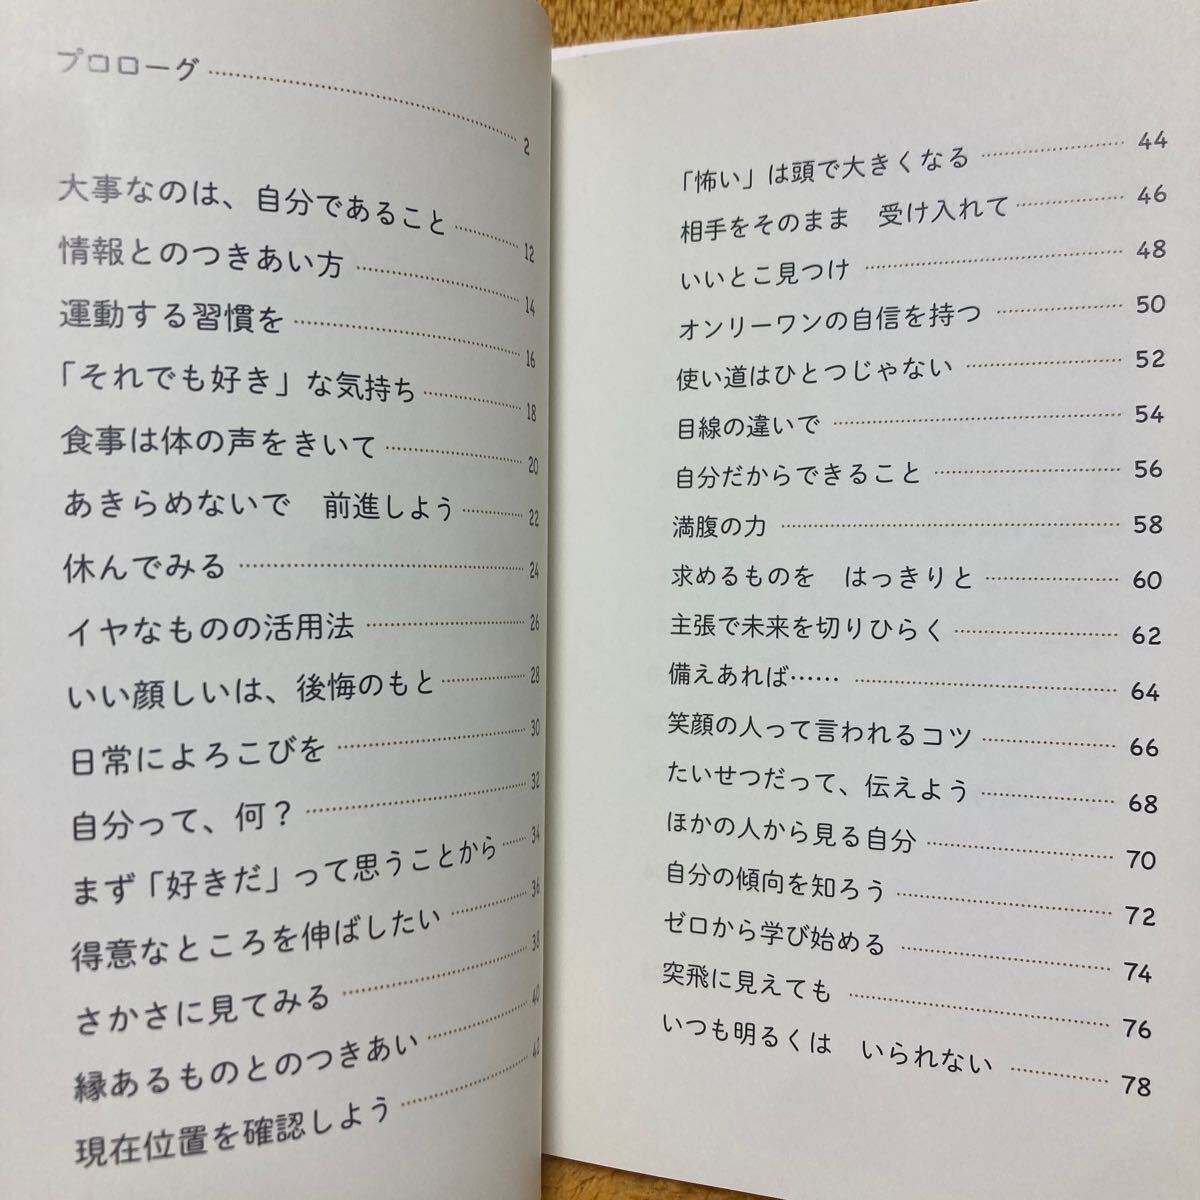 プロローグ 2
大事なのは、自分であること 12
情報とのつきあい方 14
運動する習慣を 16
「それでも好き」な気持ち 18
食事は体の声をきいて 20
あきらめないで　前進しよう 22
休んでみる 24
イヤなものの活用法 26
いい顔しいは、後悔のもと 28
日常によろこびを 30
自分って、何？ 32
まず「好きだ」って思うことから 34
得意なところを伸ばしたい 36
さかさに見てみる 38
縁あるものとのつきあい 40
現在位置を確認しよう 42
「怖い」は頭で大きくなる 44
相手をそのまま　受け入れて 46
いいとこ見つけ 48
オンリーワンの自信を持つ 50
使い道はひとつじゃない 52
目線の違いで 54
自分だからできること 56
満腹の力 58
求めるものを　はっきりと 60
主張で未来を切りひらく 62
備えあれば…… 64
笑顔の人って言われるコツ 66
たいせつだって、伝えよう 68
ほかの人から見る自分 70
自分の傾向を知ろう 72
ゼロから学び始める 74
突飛に見えても 76
いつも明るくは　いられない 78